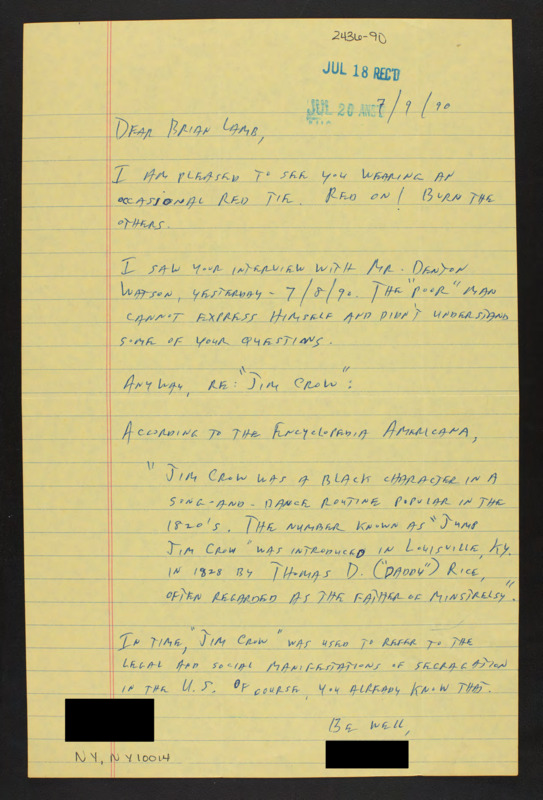 2436-90
JUL 18 REC'D
JUL 20 ANS'D
7/9/90
DEAR BRIAN LAMB,
I AM PLEASED TO SEE YOU WEARING AN
OCCASIONAL RED TIE. RED ON! BURN THE
OTHERS.
I SAW YOUR INTERVIEW WITH MR. DENTON
WATSON, YESTERDAY - 7/8/90. THE "POOR" MAN
CANNOT EXPRESS HIMSELF AND DIDN'T UNDERSTAND
SOME OF YOUR QUESTIONS.
ANYWAY, RE: "JIM CROW":
ACCORDING TO THE ENCYCLOPEDIA AMERICANA,
"JIM CROW WAS A BLACK CHARACTER IN A
SONG-AND-DANCE ROUTINE POPULAR IN THE
1820'S. THE NUMBER KNOWN AS "JUMP
JIM CROW" WAS INTRODUCED IN LOUISVILLE, KY.
IN 1828 BY THOMAS D. ("DADDY") RICE,
OFTEN REGARDED AS THE FATHER OF MINSTRELSY".
IN TIME, "JIM CROW" WAS USED TO REFER TO THE
LEGAL AND SOCIAL MANIFESTATIONS OF SEGRAGATION
IN THE U.S. OF COURSE, YOU ALREADY KNOW THAT.
BE WELL,
NY, NY 10014